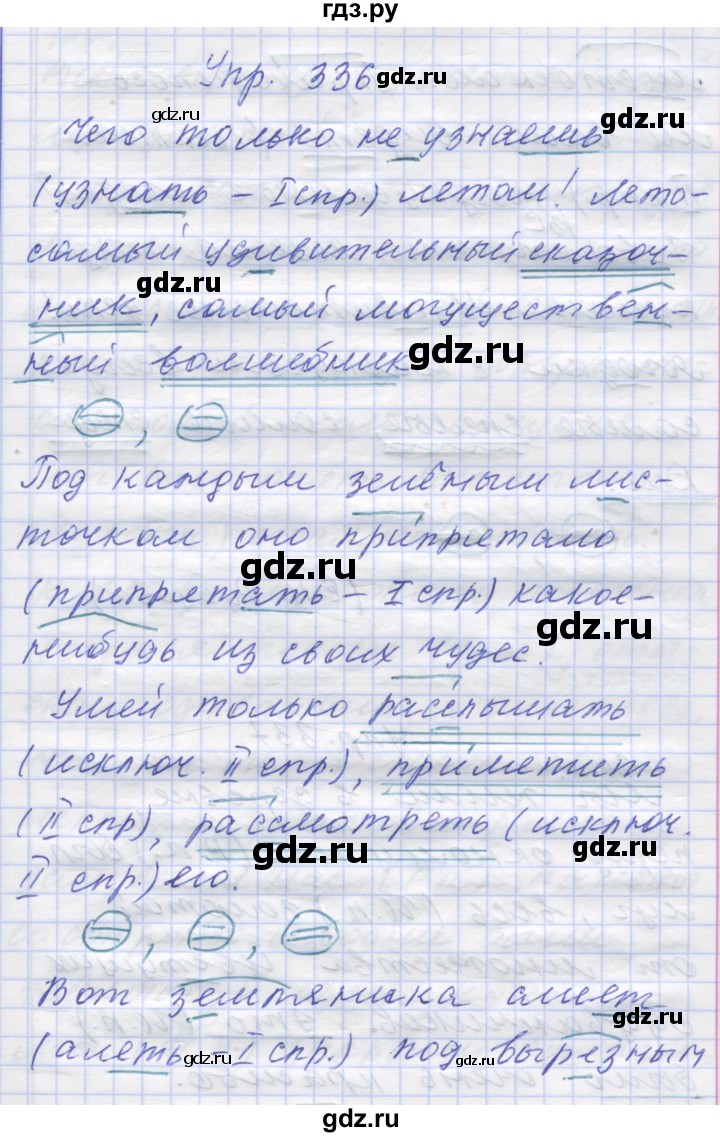 гдз.ру
Упр. 336
gdz.ru
gdz.ru
Чего только не узнаешь
gdz.ru
(узнать – I спр.) летом! Лето-
gdz.ru
самый удивительный сказоч-
gdz.ru
ник, самый могуществен-
ный волшебник
gdz.ru
Под каждым зелёным лис-
точком оно припрятало
gdz.ru
(припрятать – I спр.) какое-
gdz.ru
нибудь из своих чудес.
Умей только расслышать
gdz.ru
(исключ. II спр.), приметить
(II спр), рассмотреть (исключ.
gdz.ru
gdz.ru
II спр.) его.
Вот земляника алеет
gdz.ru
(алеть – I спр.) под вырезным
gdz.ru
gdz.ru